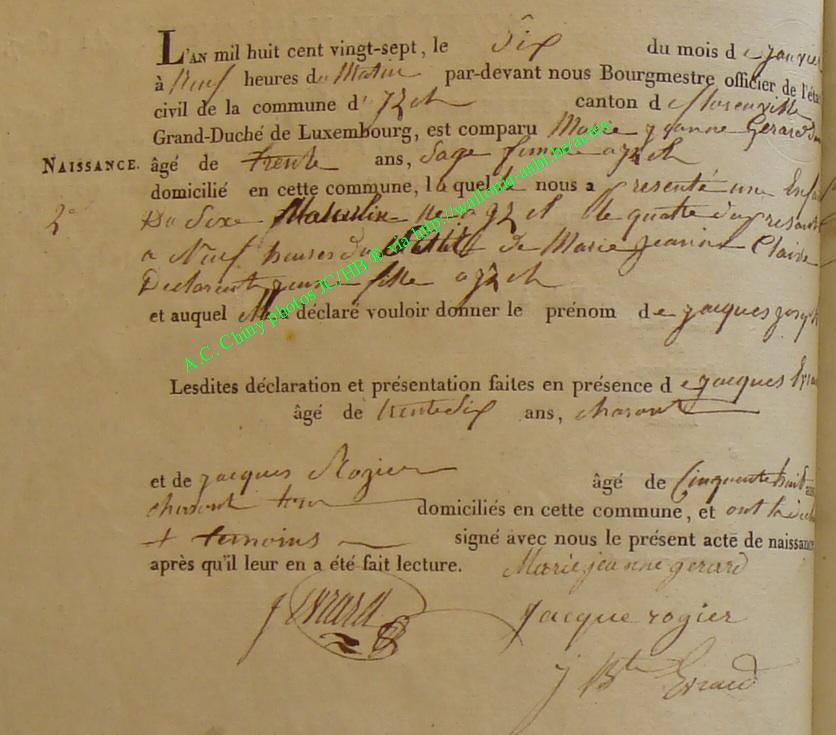 L'AN mil huit cent vingt-sept, le Six du mois de janvier
à Neuf heures du Matin par-devant nous Bourgmestre officier de l'éta
civil de la commune d' Izel canton de florenville
Grand-Duché de Luxembourg, est comparu Marie jeanne Gerard
NAISSANCE. âgé de trente ans, Sage femme a izel
domicilié en cette commune, la quelle nous a resenté un Enfa
2e Du Sexe Masculin izel le quatre du
a Neuf heures du de Marie jeanne Claisse
fille a izel
et auquel Elle a déclaré vouloir donner le prénom de jacques joseph
A.C. Chiny photos JC/HB ® via http://wallonia-asbl.be/actes
Lesdites déclaration et présentation faites en présence de jacques Evra
âgé de trente Six ans, charont
et de jacques Rogier âgé de Cinquante huit ans
charont domiciliés en cette commune, et ont
temoins signé avec nous le présent acte de naissance
après qu'il leur en a été fait lecture. Marie jeanne gerard
j Evrard jacque rogier
j Bte Evrard